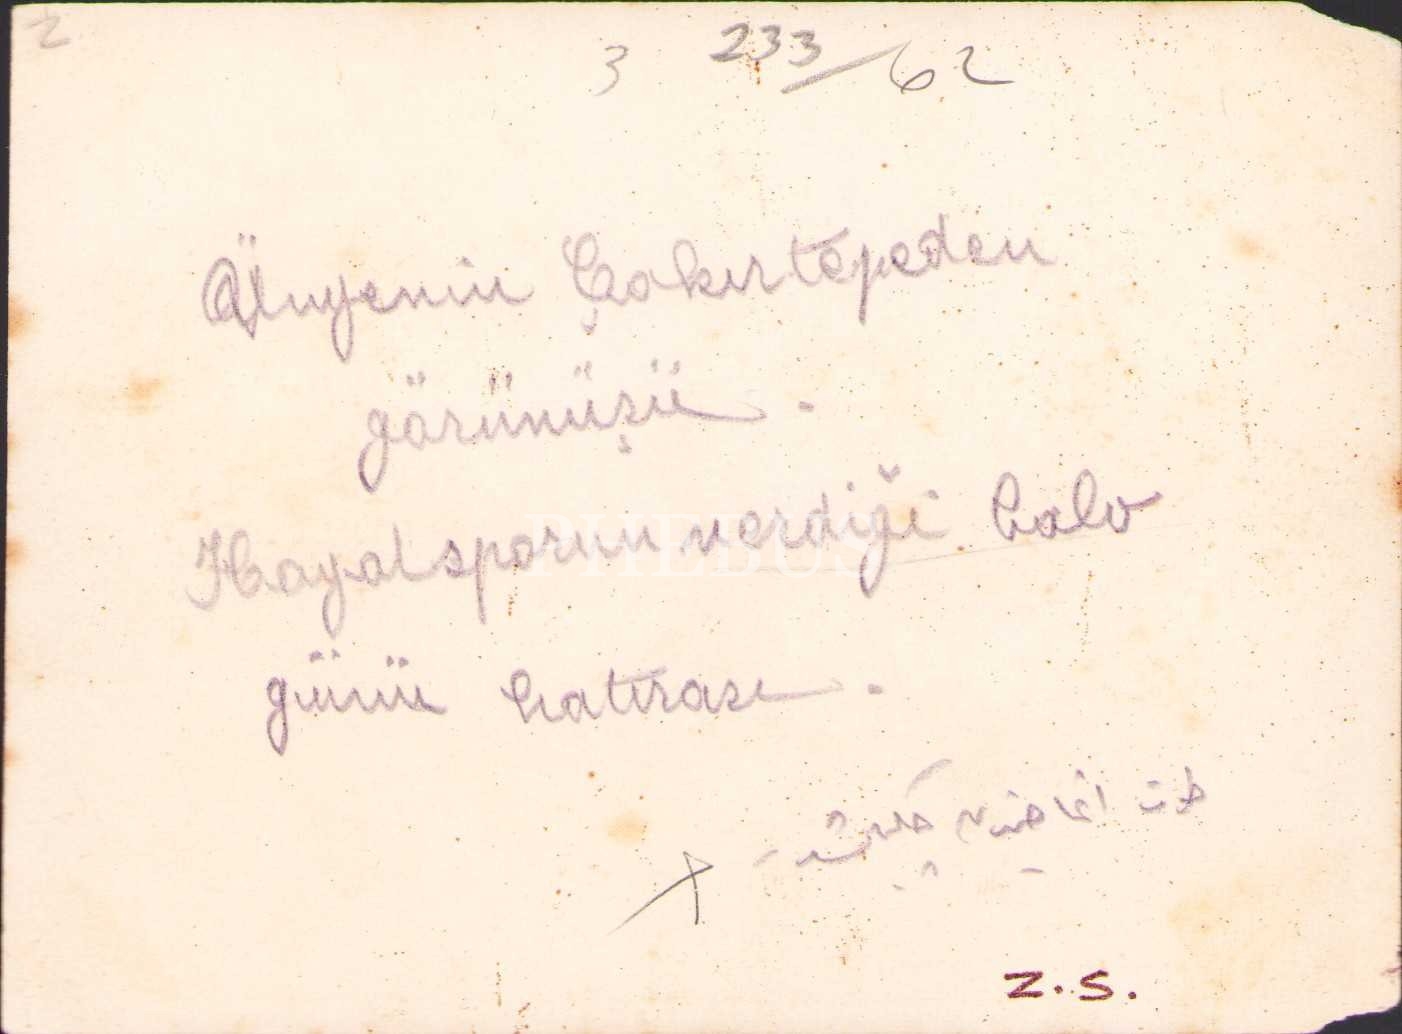 2
3 233/62
Ünyenin Çakırtepeden
görünüşü.
Hayalsporun verdiği balo
günü hatırası.
PHEBUS
Z.S.